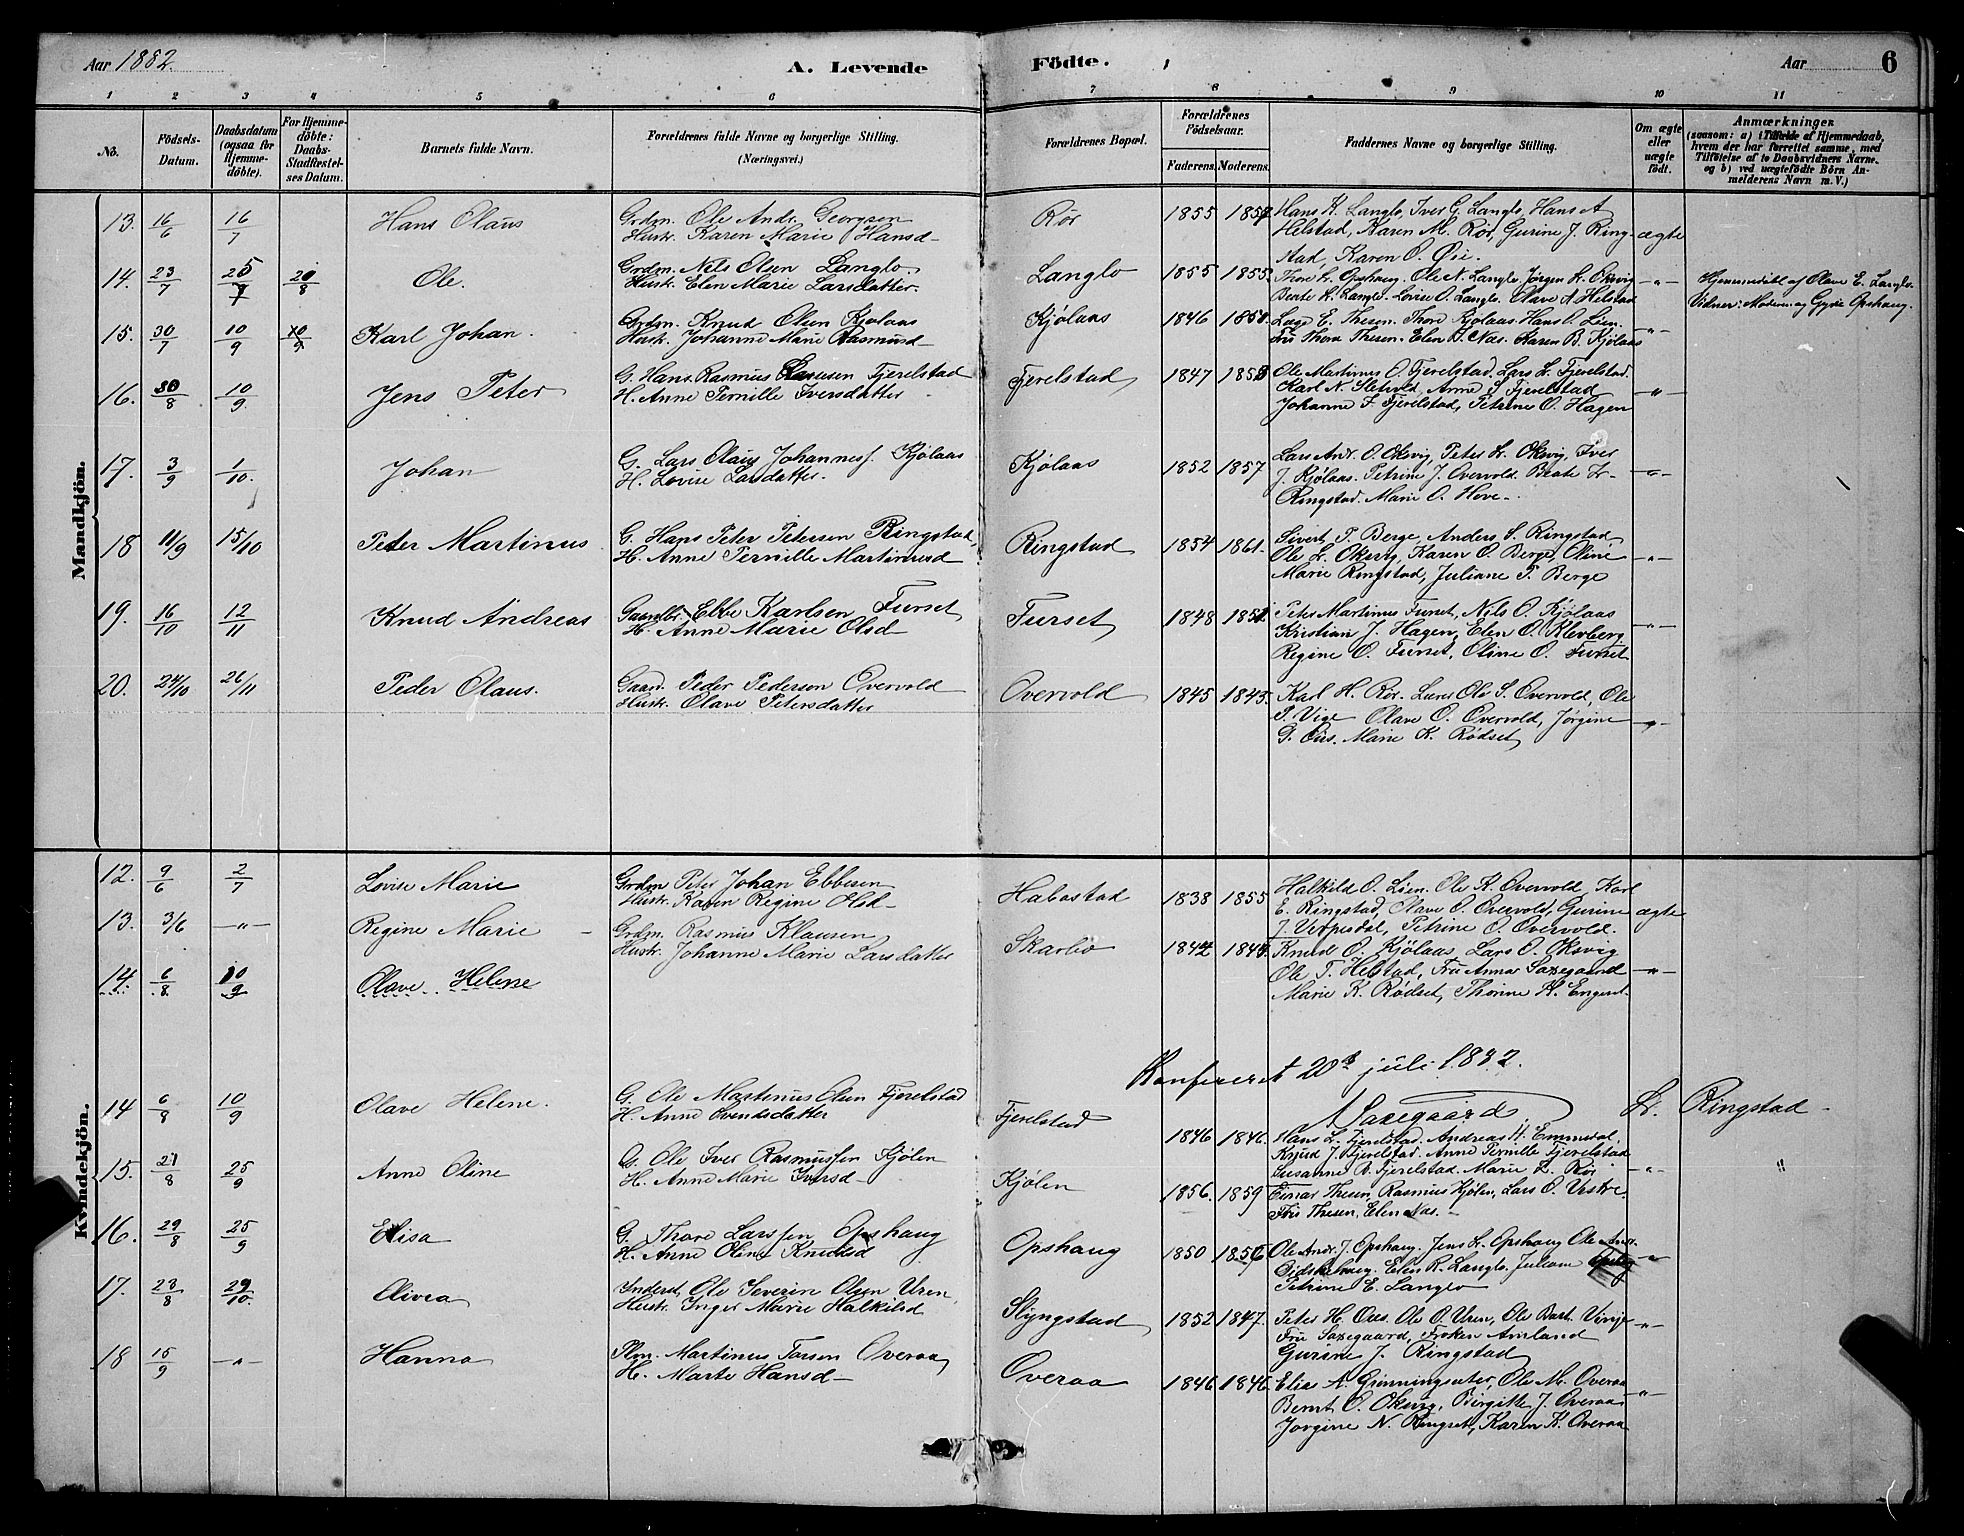 Aar 1882. A. Levende Födte. Aar 6
1 2 3 4 5 6 7 8 9 10 11
No. Födsels-Datum. Daabsdatum (ogsaa for Hjemmedöbte). For Hjemmedöbte: Daabs-Stadfæstelses Datum. Barnets fulde Navn. Forældrenes fulde Navne og borgerlige Stilling. (Næringsvei.) Forældrenes Bopæl. Forældrenes Födselsaar. Faderens. Moderens. Faddernes Navne og borgerlige Stilling. Om ægte eller uægte födt. Anmærkninger (saasom: a) i Tilfælde af Hjemmedaab, hvem der har forrettet samme, med Tilföielse af to Daabsvidners Navne. og b) ved uægtefödte Börn Anmelderens Navn m. V.)
Mandkjön.
13. 16/6 16/7 Hans Olaus Grdm. Ole Andr. Georgsen Rör 1855 Hans K. Langlo, Iver G. Langlo, Hans A
Hustr. Karen Marie Hansd- Helstad, Karen M. Rör, Gurine J. Ring- ægte
stad, Karen O. Öie.
14. 23/7 20/8 Ole. Grdm. Nils Olsen Langlo. Langlo 1855 1855. Thore L. Opshaug. Ole N. Langlo Jörgen L. Oksvig -"- Hjemmedöbt af Olave E. Langlo.
Hustr. Elen Marie Larsdatter. Beate K. Langlo. Lovise O. Langlo. Olave A Helstad Vidner: Moderen og Gyda Opshaug.
15. 30/7 10/9 Karl Johan. Grdm. Knud Olsen Kjölaas Kjölaas 1846 Lage E. Thesen. Thore Kjölaas. Hans O. Lien. -"-
Hustr. Johanne Marie Rasmusd- Fru Thora Thesen. Elen B. Nas. Karen B. Kjölaas
16. 30/8 10/9 Jens Peter G. Hans Rasmus Larsen Fjerelstad Fjerelstad 1847 Ole Martinus O. Fjerelstad. Lars L. Fjerelstad.
H. Anne Pernille Iversdatter Karl N. Sletvold. Anne S. Fjerelstad -"-
Johanne F. Fjerelstad, Petrine O. Hagen
17. 3/9 1/10. Johan G. Lars Olaus Johanness. Kjölaas Kjölaas 1852 1857 Lars Andr. O. Oksvig, Peter L. Oksvig, Iver
H. Lovise Larsdatter. J. Kjölaas. Petrine J. Overvold. Beate L- -"-
Ringstad. Marie O. Hove-.
18 11/9 15/10 Peder Martinus G. Hans Peter Petersen Ringstad, Ringstad 1854 1861. Sivert P. Berge, Anders S. Ringstad
H. Anne Pernille Martinusd Ole L. Oksvig, Karen O. Berge, Oline -"-
Marie Ringstad, Juliane P. Berge
19. 16/10 12/11 Knud Andreas Gaardbr. Ebbe Karlsen Furset Furset 1848 1851. Peter Martinus Furset, Nils O. Kjölaas
H. Anne Marie Olsd- Kristian J. Hagen, Elen O. Klevberg -"-
Regine O. Furset, Oline O. Furset
20. 24/10 26/11 Peder Olaus. Gaard. Peder Pederson Overvold Overvold 1845 1843. Karl H. Rör. Lars Ole S. Overvold, Ole
Hustr. Olave Petersdatter P. Vige Olave O. Overvold, Jörgine -"-
G. Öus. Marie K. Rödset
Kvindekjön.
12. 9/6 2/7 Lovise Marie Grdm Peter Johan Ebbesen Habostad 1838 1855 Halkild O. Lien. Ole K. Overvold, Karl
Hustr. Karen Regine Olsd- E. Ringstad, Olave O. Overvold, Gurine ægte
13. 3/6 -"- Regine Marie - Grdm. Rasmus Klausen Skarbö J. Petrine O. Overvold.
Hustr. Johanne Marie Larsdatter Knud O. Kjölaas, Lars O. Oksvig
14. 6/8. 10/9 Olave Helene Ole T. Helstad, Fru Anna Saxegaard -"-
Marie K. Rödset, Thorine H. Engeset.
Konfereret 20de juli 1882.
Saxegaard L. Ringstad
14 6/8 10/9 Olave Helene. G. Ole Martinus Olsen Fjerelstad Fjerelstad 1846 1846. Hans L. Fjerelstad. Andreas H. Emmedal,
H. Anne Svendsdatter Knud J. Fjerelstad. Anne Pernille Fjerelstad
Susanne B. Fjerelstad. Marie L. Rör -"- "
15. 21/8 25/9 Anne Oline G. Ole Iver Rasmussen Kjölen Kjölen 1856. 1859 Einar Thesen, Rasmus Kjölen, Lars O. Vestre.
H. Anne Marie Iversd- Fru Thesen, Elen Nas.-
16. 29/8 25/9 Elisa G. Thore Larssen Opshaug Opshaug 1850 1856 Ole Andr. J. Opshaug. Jens L. Opshaug Ole Andr. -"-
H. Anne Oline Knudsd Elen R. Langlo. Juliane
Petrine E. Langlo
17. 23/8 29/10. Olivea Inderst. Ole Severin Olsen Uren. Slyngstad 1852 1847. Peter H. Oues. Ole O. Uren, Ole Bast. Vinje -"-
Hustr. Inger Marie Halkilsd Fru Saxegaard, Fröken Amland
Gurine J. Ringstad
18 15/9 -"- Hanna Plm. Martinus Larsen Overaa, Overaa 1846 1846. Elias A. Grönningsæter, Ole M. Overaa
H. Marte Hansd- Bernt O. Oksvig, Birgitte J. Overaa -"-
Jorgine N. Ringset, Karen K. Overaa